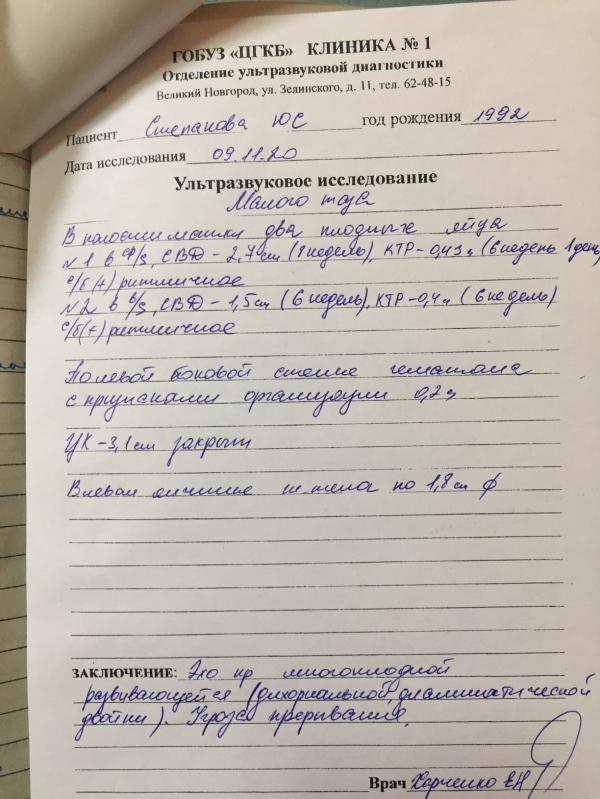 ГОБУЗ «ЦГКБ» КЛИНИКА № 1
Отделение ультразвуковой диагностики
Великий Новгород, ул. Зелинского, д. 11, тел. 62-48-15
Пациент Степанова ЮС год рождения 1992
Дата исследования 09.11.20
Ультразвуковое исследование
Малого таза
В полости матки два плодных яйца
N1 в СВД - 2,7 см (8 недель), КТР - 0,43 (6 недель 1 день)
с/б (+) ритмичное
N2 в СВД - 1,5 см (6 недель), КТР - 0,4 (6 недель)
с/б (+) ритмичное
По левой боковой стенке гематома
с признаками организации 0,2
ЦК - 3,1 см закрыт
В левом яичнике тела по 1,8 см ф
ЗАКЛЮЧЕНИЕ: Эхо пр многоплодной
развивающейся (дихориальной, диамниотической
двойни). Угроза прерывания.
Врач Харченко ЕН